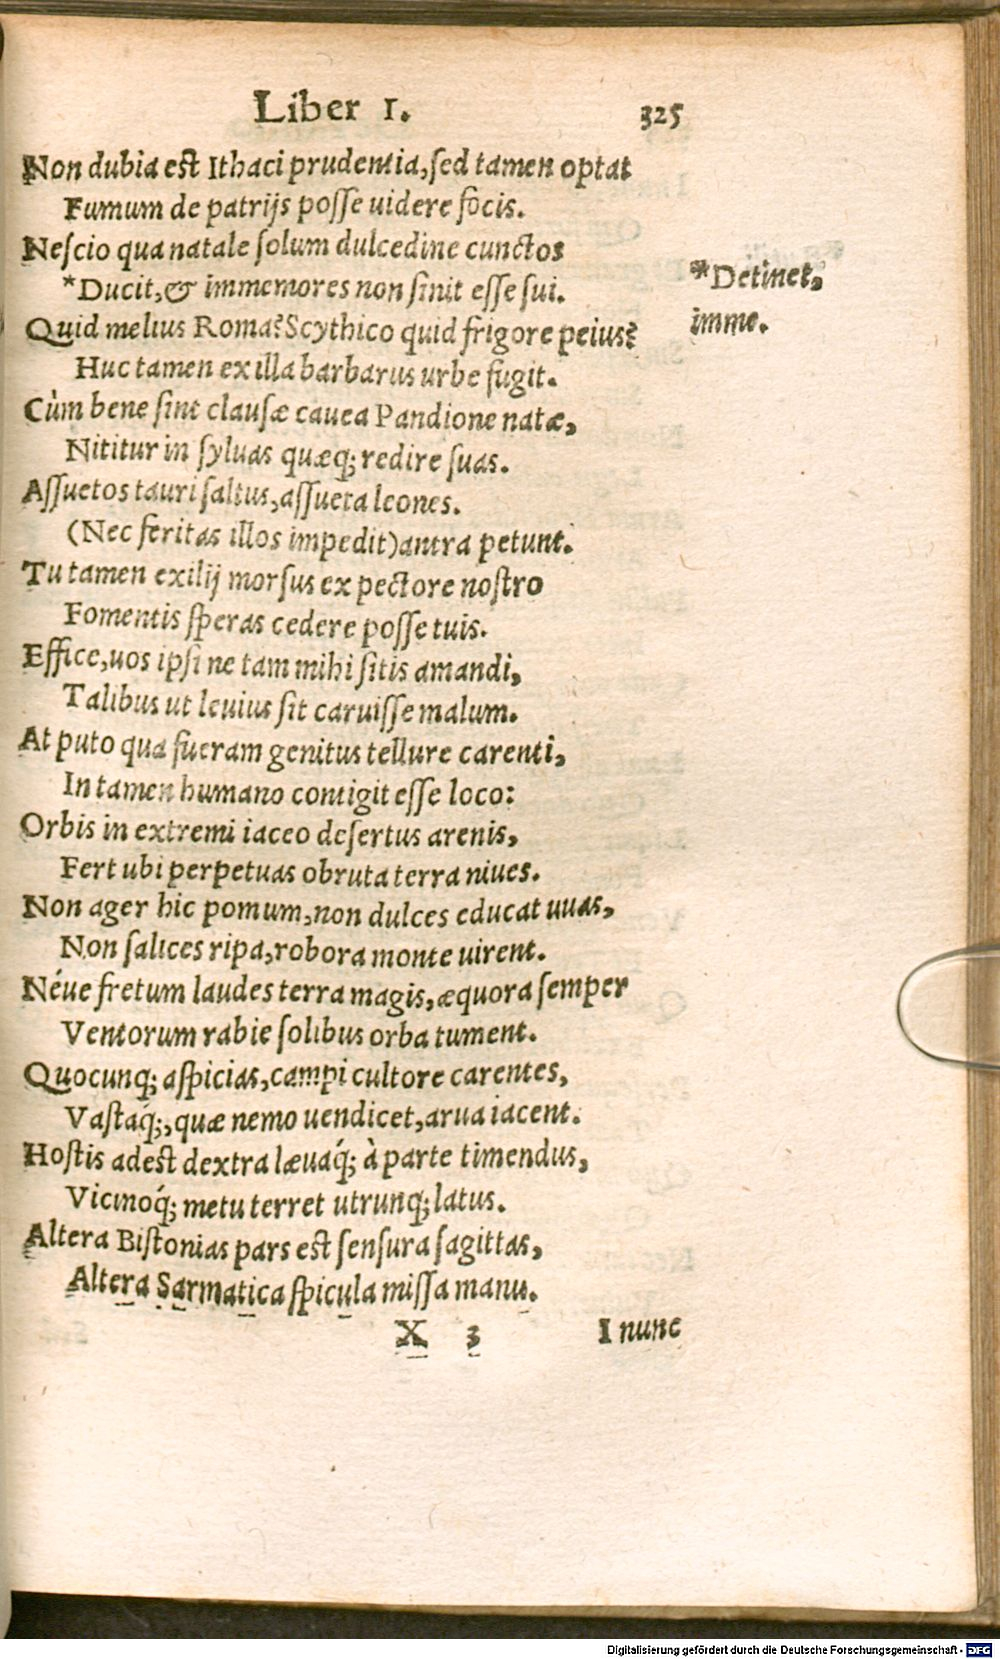 Liber 1. 325
Non dubia est Ithaci prudentia, ſed tamen optat
Fumum de patrijs poſſe uidere focis.
Neſcio qua natale ſolum dulcedine cunctos
*Ducit, & immemores non ſinit eſſe ſui.
*Detinet,
imme.
Quid melius Roma? Scythico quid frigore peius?
Huc tamen ex illa barbarus urbe fugit.
Cùm bene ſint clauſæ cauea Pandione natæ,
Nititur in ſyluas quæq; redire ſuas.
Aſſuetos tauri ſaltus, aſſueta leones.
(Nec feritas illos impedit) antra petunt.
Tu tamen exilij morſus ex pectore noſtro
Fomentis ſperas cedere poſſe tuis.
Effice, uos ipſi ne tam mihi ſitis amandi,
Talibus ut leuius ſit caruiſſe malum.
At puto qua fueram genitus tellure carenti,
In tamen humano contigit eſſe loco:
Orbis in extremi iaceo deſertus arenis,
Fert ubi perpetuas obruta terra niues.
Non ager hic pomum, non dulces educat uuas,
Non ſalices ripa, robora monte uirent.
Néue fretum laudes terra magis, æquora ſemper
Ventorum rabie ſolibus orba tument.
Quocunq; aſpicias, campi cultore carentes,
Vaſtaq́;, quæ nemo uendicet, arua iacent.
Hoſtis adest dextra læuaq́; à parte timendus,
Vicinoq́; metu terret utrunq; latus.
Altera Biſtonias pars est ſenſura ſagittas,
Altera Sarmatica ſpicula miſſa manu.
X 3 I nunc
Digitalisierung gefördert durch die Deutsche Forschungsgemeinschaft - DFG